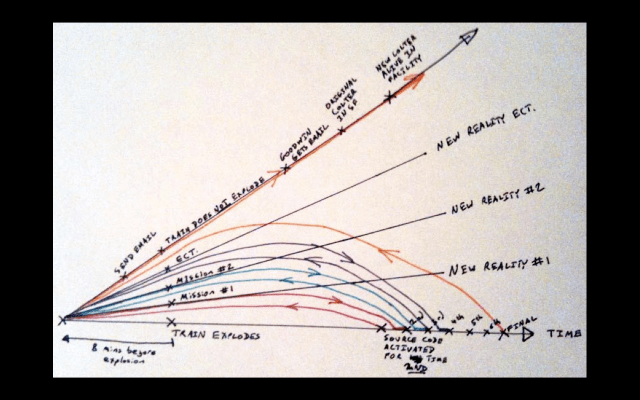 NEW COLTER
ALIVE IN
FACILITY
ORIGINAL
COLTER
IN SF
GOODWIN
GETS EMAIL
NEW REALITY ECT.
TRAIN DOES NOT EXPLODE
SEND EMAIL
ECT.
NEW REALITY #2
MISSION #2
NEW REALITY #1
MISSION #1
TRAIN EXPLODES
8 mins before
explosion
SOURCE CODE
ACTIVATED
FOR TIME
2ND
4th
5th
FINAL
TIME